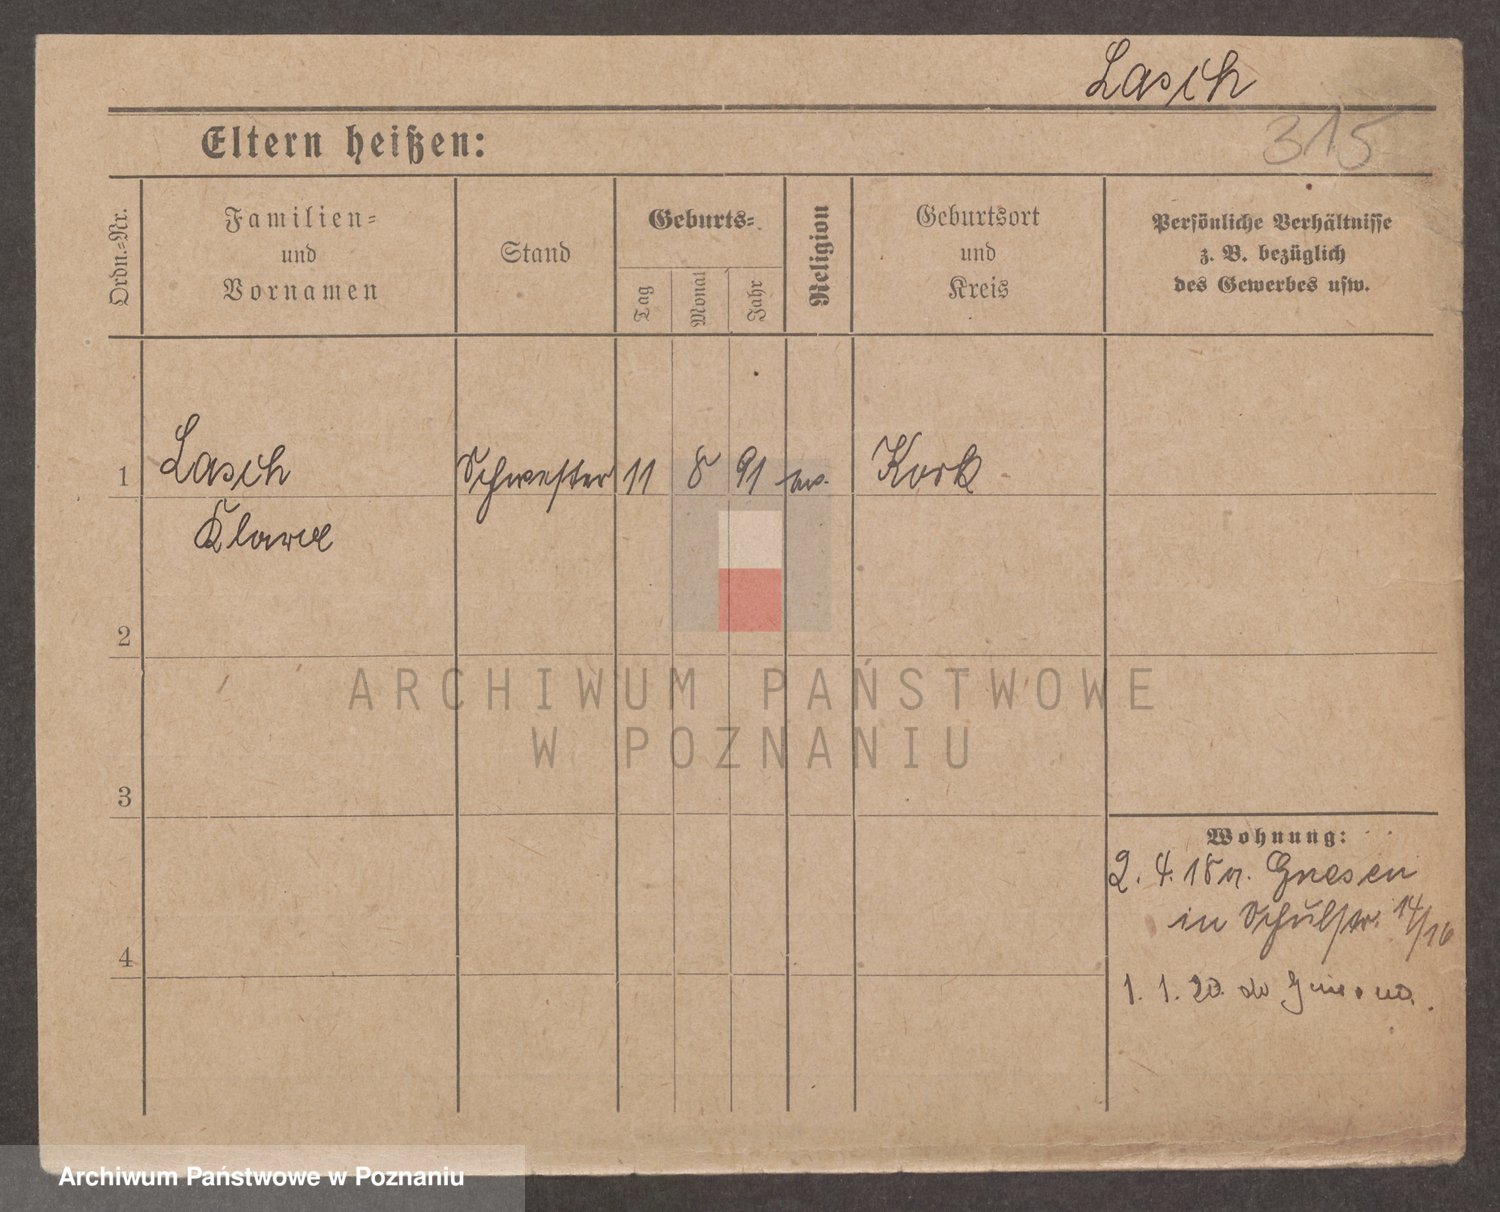 Lasch
315
Eltern heißen:
Ordn.=Nr.
Familien=
und
Vornamen
Stand
Geburts=
Tag
Monat
Jahr
Religion
Geburtsort
und
Kreis
Persönliche Verhältnisse
z. B. bezüglich
des Gewerbes usw.
1
Lasch
Schwester
11
8
91
ev.
Kork
Klara
2
3
4
Wohnung:
2. 4. 18 v. Gnesen
in Schulstr. 14/16
1. 1. 20. do
ARCHIWUM PAŃSTWOWE
W POZNANIU
Archiwum Państwowe w Poznaniu